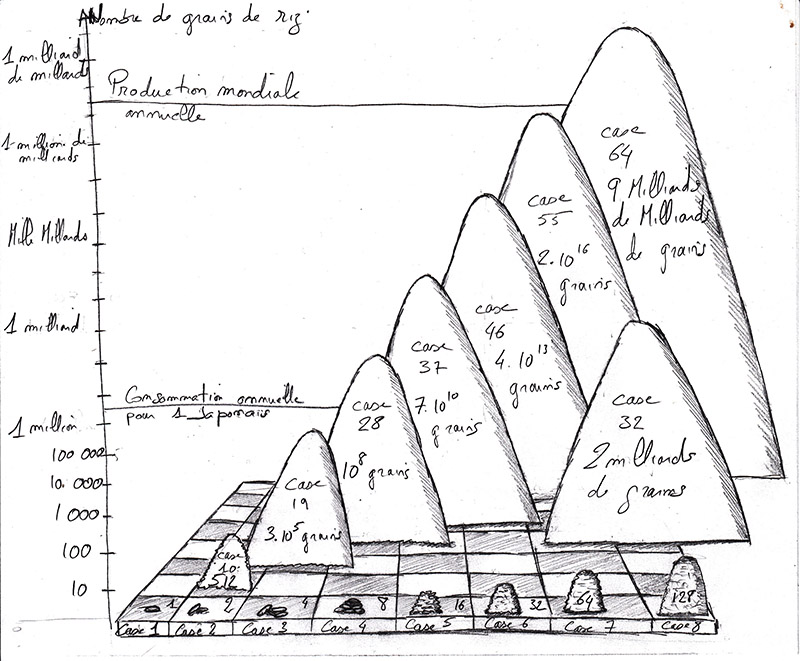 Nombre de grains de riz
1 milliard
de milliards
Production mondiale
annuelle
1 million de
milliards
Mille Milliards
1 milliard
Consommation annuelle
pour 1 Japonais
1 million
100 000
10.000
1 000
100
10
case
64
9 Milliards
de Milliards
de grains
case
55
2.10¹⁶
grains
case
46
4.10¹³
grains
case
37
7.10¹⁰
grains
case
28
10⁸ grains
Case
19
3.10⁵ grains
case
10
512
case
32
2 milliards
de graines
1
2
4
8
16
32
64
128
Case 1
Case 2
Case 3
Case 4
Case 5
Case 6
Case 7
Case 8